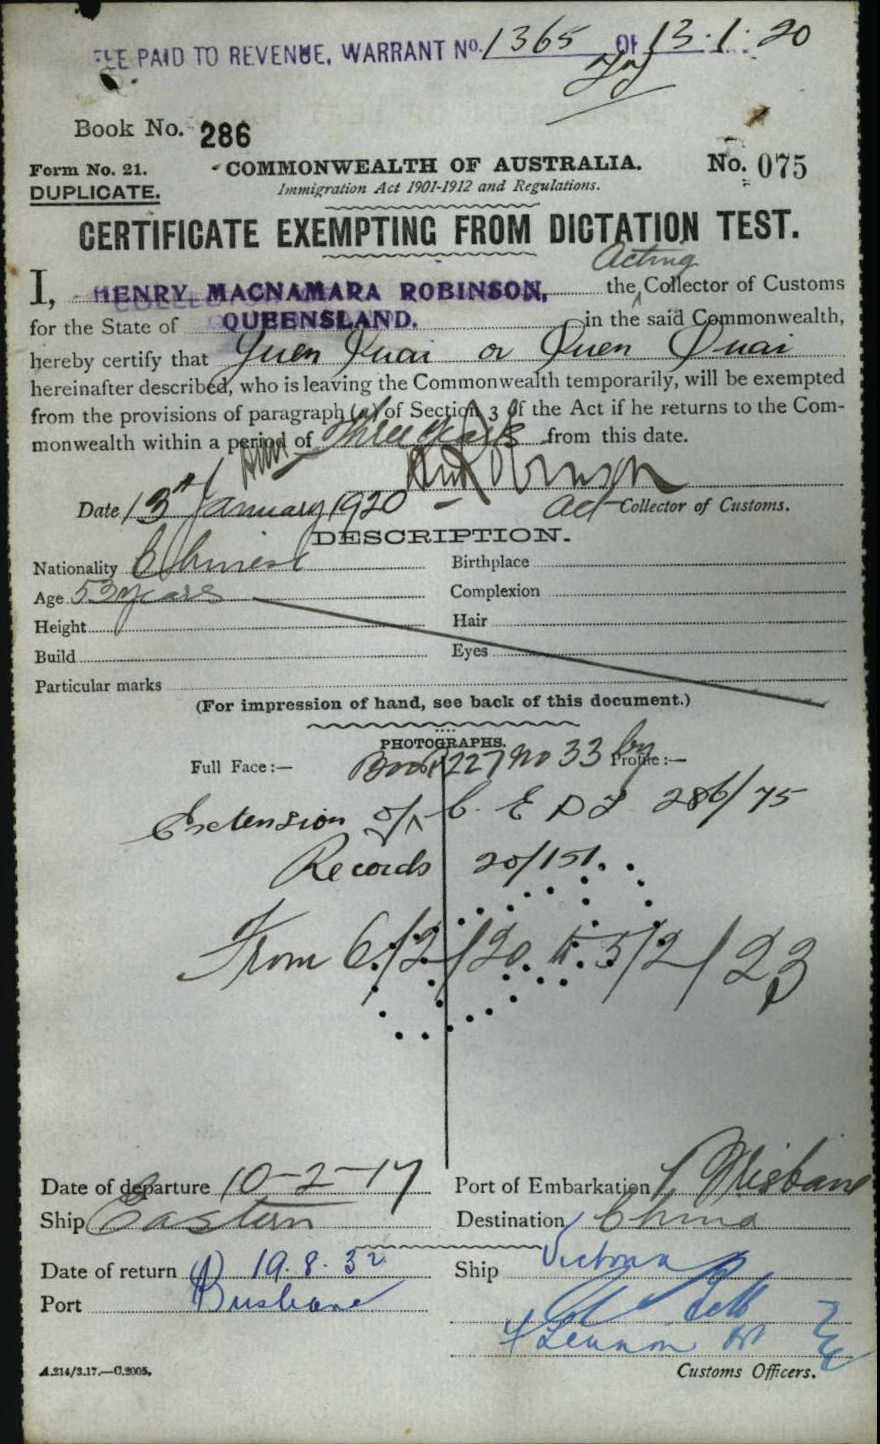 FEE PAID TO REVENUE, WARRANT No. 1365 OF 13.1.20
Book No. 286
Form No. 21. COMMONWEALTH OF AUSTRALIA. No. 075
DUPLICATE. Immigration Act 1901-1912 and Regulations.
CERTIFICATE EXEMPTING FROM DICTATION TEST.
Acting
I, HENRY MACNAMARA ROBINSON, the Collector of Customs
for the State of QUEENSLAND. in the said Commonwealth,
hereby certify that Yuen Kuai or Quen Quai
hereinafter described, who is leaving the Commonwealth temporarily, will be exempted
from the provisions of paragraph (a) of Section 3 of the Act if he returns to the Com-
monwealth within a period of Three years from this date.
HMR HMRobinson
Date 13th January 1920 Act Collector of Customs.
DESCRIPTION.
Nationality Chinese Birthplace
Age 53 years Complexion
Height Hair
Build Eyes
Particular marks
(For impression of hand, see back of this document.)
PHOTOGRAPHS.
Full Face:— Book 227 No 33 Profile:—
Extension of C. E D T 286/75
Records 20/151.
From 6/2/20 to 5/2/23
Date of departure 10-2-17 Port of Embarkation Brisbane
Ship Eastern Destination China
Date of return 19.8.32 Ship Victoria
Port Brisbane
A.214/3.17.—C.2005. Customs Officers.